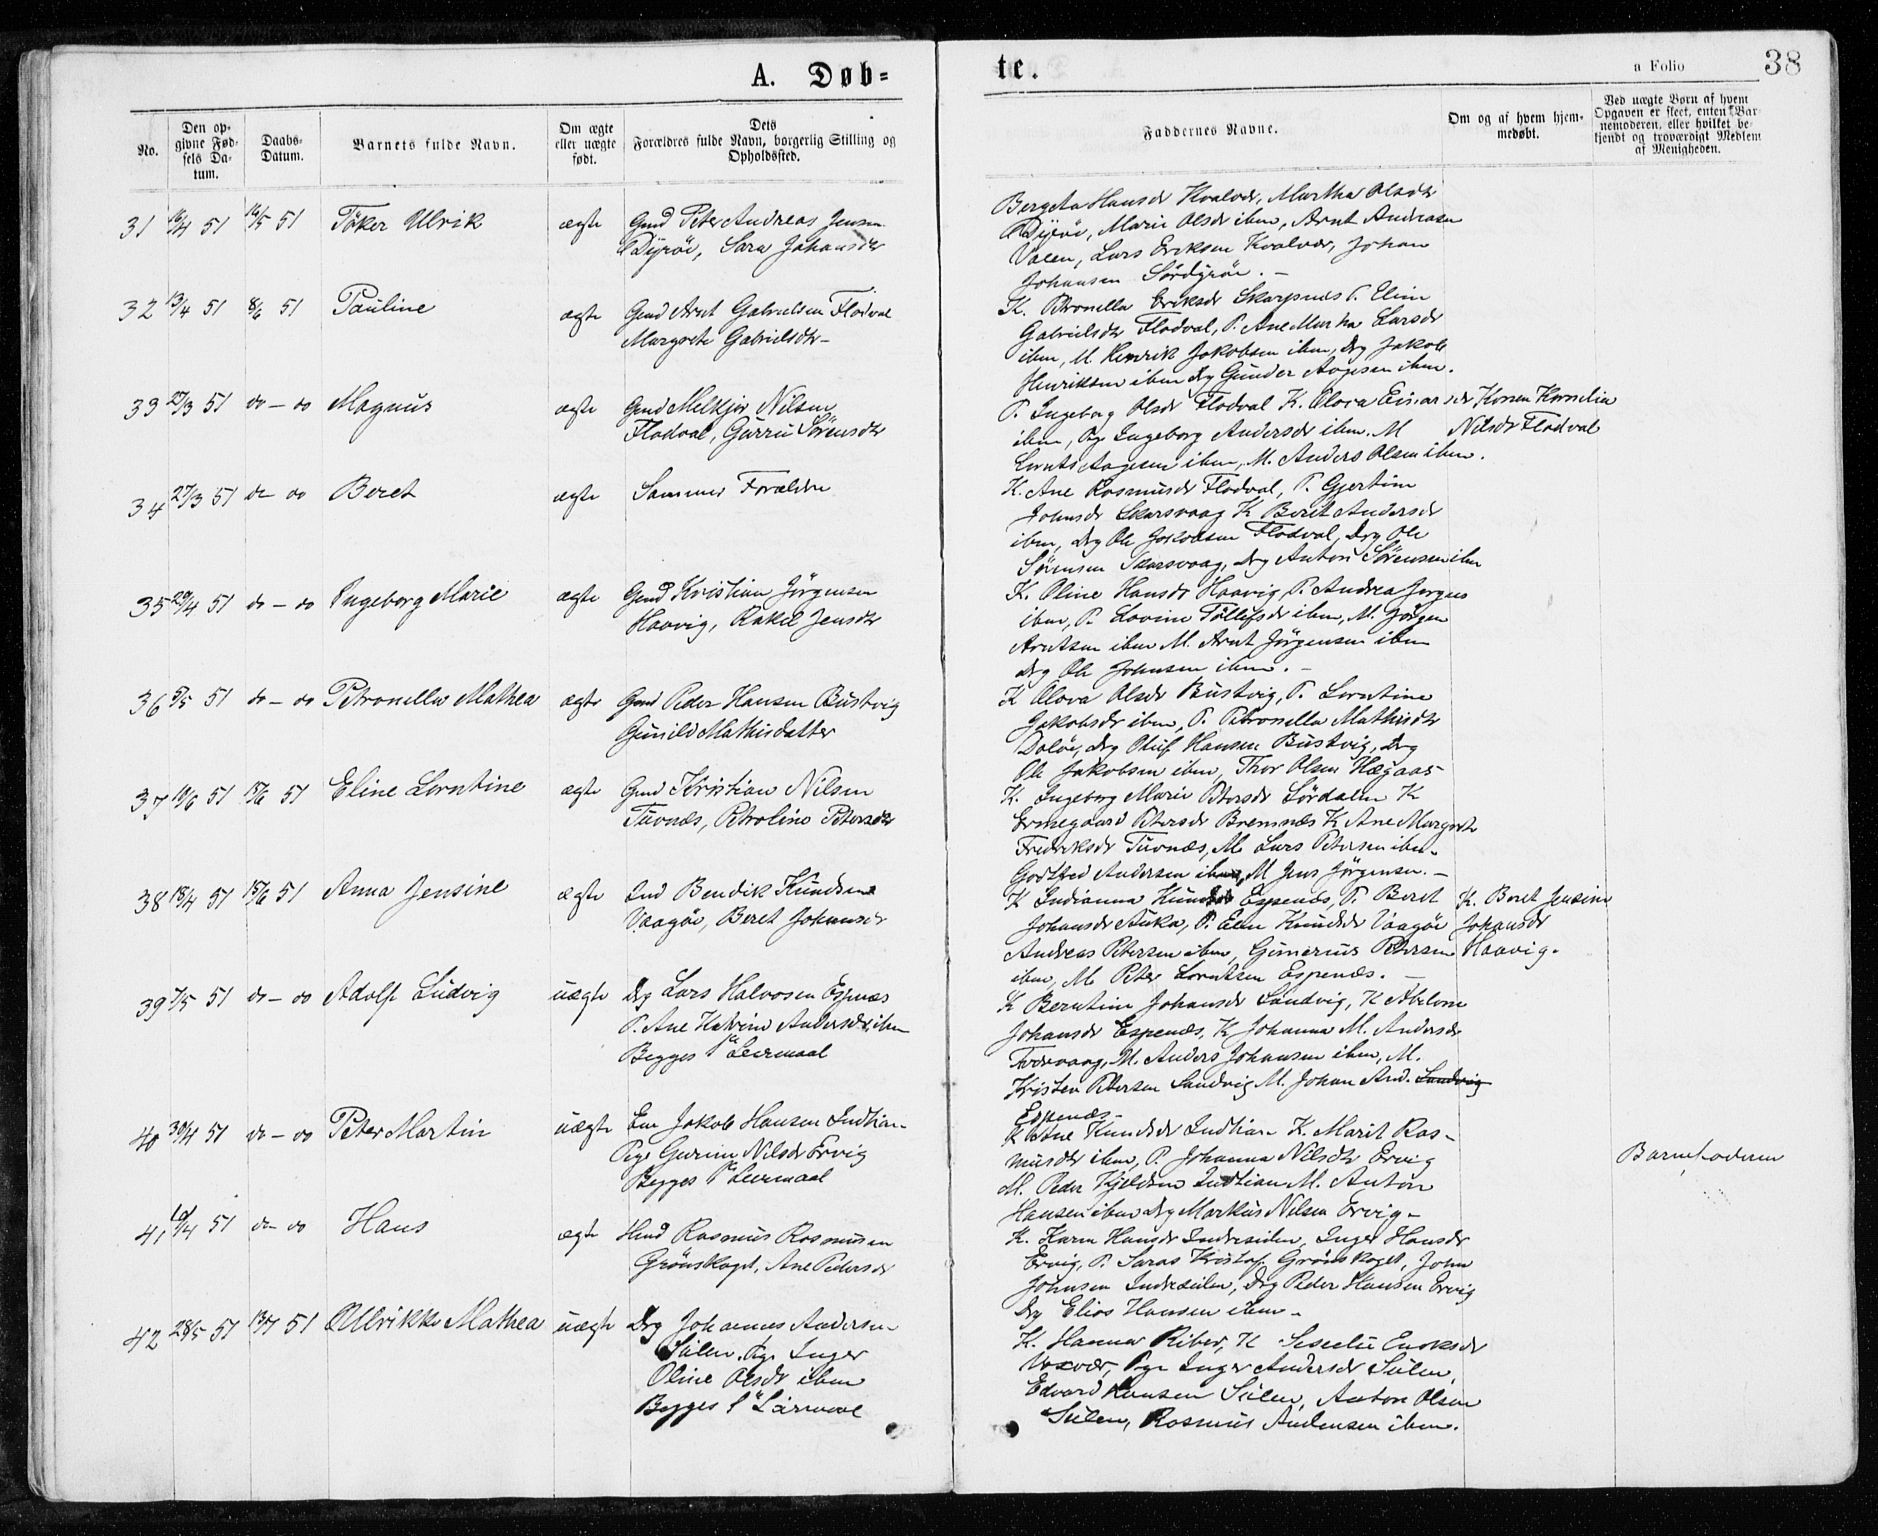 A. Døb=
te.
a Folio 38
No.
Den op-
givne Fød-
sels Da-
tum.
Daabs-
Datum.
Barnets fulde Navn.
Om ægte
eller uægte
født.
Dets
Forældres fulde Navn, borgerlig Stilling og
Opholdssted.
Faddernes Navne.
Om og af hvem hjem-
medøbt.
Ved uægte Børn af hvem
Opgaven er skeet, enten Bar-
nemoderen, eller hvilket be-
kjendt og troværdigt Medlem
af Menigheden.
31 16/4 51 16/5 51 Töker Ulrik ægte Gmd Peter Andreas Jensen
Dyröe, Sara Johansdr
Bergeta Hansdr Kvalvær, Martha Olsdr
Dyröe, Marie Olsdr ibm, Arnt Andreasen
Valen, Lars Eriksen Kvalvær, Johan
Johansen Sördyröe. -
32 13/4 51 8/6 51 Pauline ægte Gmd Arnt Gabrielsen Flodval
Margrete Gabrielsdr -
K. Petronella Eriksdr Skarpnes P. Elim
Gabrielsdr Flodval, P. Ane Marta Larsdr
ibm, M. Henrik Jakobsen ibm, Drg Jakob
Henriksen ibm Drg Gunder Aagesen ibm.
33 27/3 51 do - do Magnus ægte Gmd Melkjor Nilsen
Flodval, Gurru Sörensdr
P. Ingeborg Olsdr Flodval K. Olova Einarsdr
ibm, Pg Ingeborg Andersdr ibm. M
Lornts Aagesen ibm, M. Anders Olsen ibm.
Konen Kornelia
Nilsdr Flodval
34 27/3 51 do do Beret ægte Sammes Forældre
K. Ane Rasmusdr Flodval, P. Gjertine
Johnsdr Skarsvaag K Beret Andersdr
ibm, Drg Ole Jakobsen Flodval, Drg Ole
Sörensen Skarsvaag, Drg Anton Sörensen ibm
35 29/4 51 do - do Ingeborg Marie ægte Gmd Kristian Jörgensen
Haavig, Rakel Jensdr
K. Oline Hansdr Haavig P. Andrea Jörgens
ibm, P. Lovine Töllefsdr ibm, M. Jörgen
Arntsen ibm M. Arnt Jörgensen ibm
Drg Ole Johnsen ibm. -
36 5/5 51 do - do Petronella Mathea ægte Gmd Peder Hansen Bustvig
Gunild Mathisdatter
K Olova Olsdr Bustvig, P. Lorntine
Jakobsdr ibm, P. Petronella Mathisdr
Dolöe, Drg Oluf Hansen Bustvig, Drg
Ole Jakobsen ibm, Thor Olsen Hægaas -
37 10/6 51 15/6 51 Eline Lorntine ægte Gmd Kristian Nilsen
Tuvnæs, Petroline Petersdr
K. Ingeborg Marie Petersdr Sördalen K
Ermegaard Petersdr Bremnæs K Ane Margrete
Fredriksdr Tuvnæs, M. Lars Petersen ibm.
Godtfred Andersen ibm, M Jens Jörgensen. -
38 18/4 51 15/6 51 Anna Jensine ægte Ind Bendik Knudsen
Vaagöe, Beret Johansdr
K Indianna Knudsdr Espenæs, P. Beret
Johansdr Auka, P. Elen Knudsdr Vaagöe
Andreas Petersen ibm, Gunerius Petersen
ibm, M. Peter Lorntsen Espenæs. -
K. Beret Jensine
Johansdr
Haavig.
39 7/5 51 do - do Adolf Ludvig uægte Drg Lars Halvorsen Espenæs
P. Ane Katrine Andersdr ibm
Begges 1ste Leiermaal
K Berntine Johansdr Sandvig, K Abelone
Johansdr Espenæs, K Johanna M. Andersdr
M. Anders Johansen ibm, M.
Kristen Petersen Sandvig M. Johan And. Sandvig
Espenæs -
40 30/4 51 do - do Peter Martin uægte Em Jakob Hansen Indtian -
Pige Gurine Nilsdr Ervig
Begges 1ste Leiermaal
K Ane Knudsdr Indtian K. Marit Ras-
musdr ibm, P. Johanna Nilsdr Ervig
M. Peder Kjeldsen Indtian M. Anton
Hansen ibm Drg Markus Nilsen Ervig -
Barnefaderen
41 10/4 51 do - do Hans ægte Hmd Rasmus Rasmussen
Grönskaget, Ane Pedersdr
K. Karen Hansdr Indresulen, Inger Hansdr
Ervig, P. Saras Kristof. Grönskaget, John
Johnsen Indresulen, Drg Peder Hansen Ervig
Drg Elias Hansen ibm -
42 28/5 51 13/7 51 Ullrikke Mathea uægte Drg Johannes Andersen
Sulen, Pige Inger
Oline Olsdr ibm
Begges 1ste Leiermaal
K. Hanna Riber, K Seselie Enoksdr
Pige Inger Andersdr Sulen,
Edvard Hansen Sulen, Anton Olsen
Sulen, Rasmus Andersen ibm.